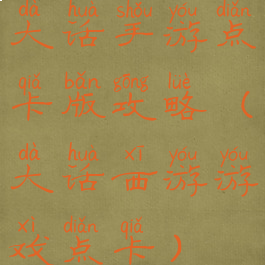 dà huà shǒu yóu diǎn
大话手游点
qiǎ bǎn gōng lüè
卡版攻略（
dà huà xī yóu yóu
大话西游游
xì diǎn qiǎ
戏点卡）